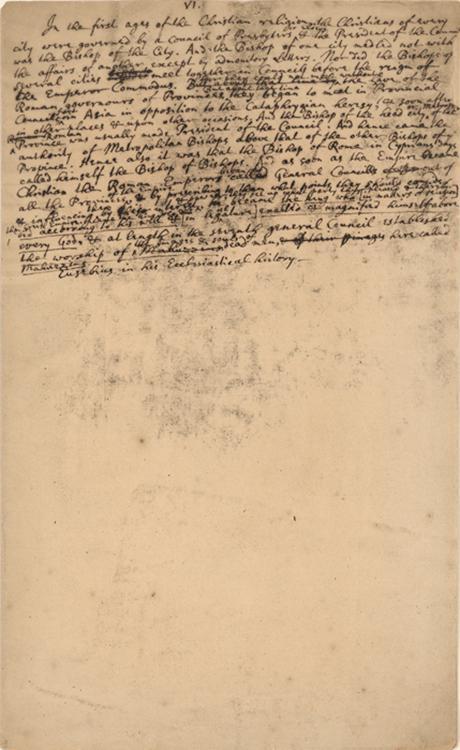 VI.
In the first ages of the Christian religion the Christians of every
city were governed by a Council of Presbyters, & the President of the Council
was the Bishop of the City. And the Bishop of one city medled not with
the affairs of another, except by admonitory Letters. Nor did the Bishops of
several cities meet together in Councils before the reign of
the Emperor Commodus. But
Roman governours of Provinces they began to meet in Provincial
Councils in Asia in opposition to the Cataphrygian heresy, & soon after
in other places upon other occasions, And the Bishop of the head city of the
Roman
Province was usually made President of the Council. And hence came the
authority of Metropolitan Bishops above that of the other Bishops of
Province. Hence also it was that the Bishop of Rome in Cyprians days
called himself the Bishop of Bishops. And as soon as the Empire became
Christian the Roman Emperors called General Councils out of
all the Provinces &
& influencing became the king who
did according to his will exalted & magnified himself above
every God: & at length in the seventh general Council established
the worship of dead men, here called
Mahuzzims.
Eusebius in his Ecclesiastical history.